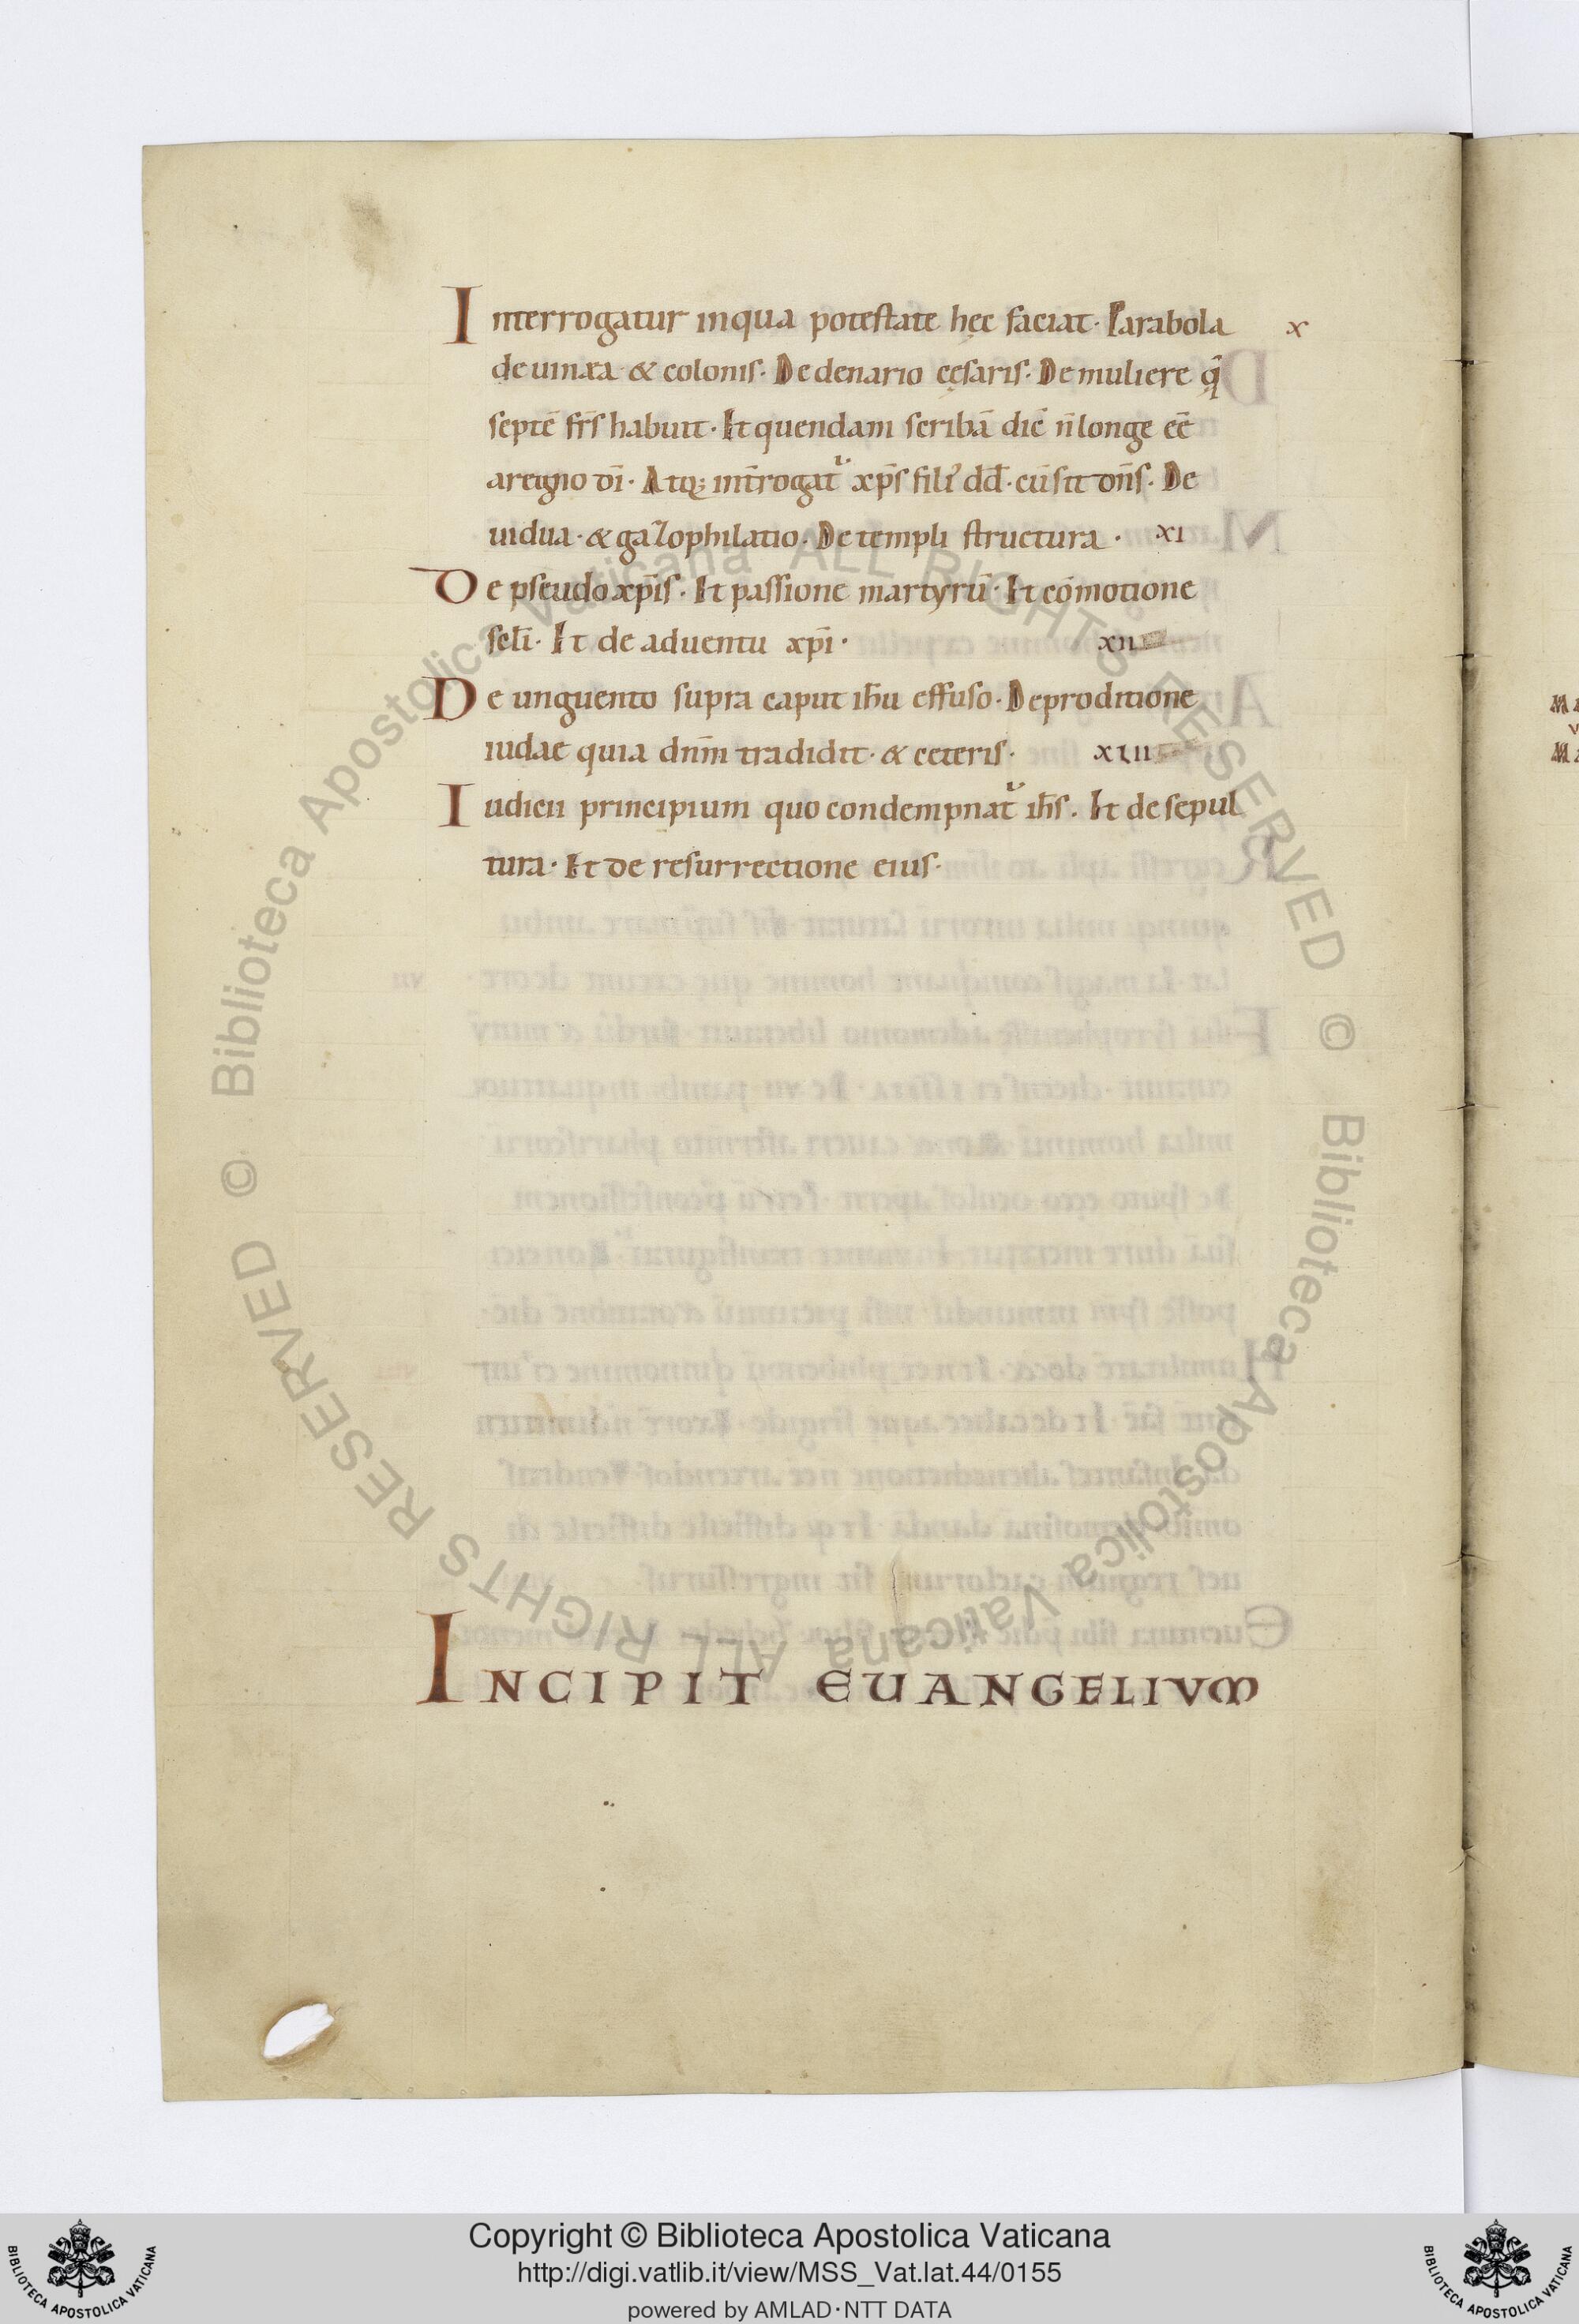 Interrogatur inqua potestate hęc faciat· Parabola x
de uinea· & colonis· De denario cęsaris· De muliere q̄
septē fr̄s habuit· Et quendam scribā dic̄ n̄ longe eē
aregno dī· Atq; int̄rogat᷑ xp̄s fili᾿ dd̄· cū sit dn̄s· De
uidua· & gazophilatio· De templi structura · xi
De pseudoxp̄is· Et passione martyrū· Et cōmotione
scl̄i· Et de aduentu xp̄i· xii
De unguento supra caput ih̄u effuso· De proditione
iudae quia dnm̄ tradidit· & ceteris· xiii
Iudicii principium quo condempnat᷑ ih̄s. Et de sepul
tura· Et de resurrectione eius·
INCIPIT EUANGELIVM
© Biblioteca Apostolica Vaticana ALL RIGHTS RESERVED
© Biblioteca Apostolica Vaticana ALL RIGHTS RESERVED
BIBLIOTECA APOSTOLICA VATICANA
Copyright © Biblioteca Apostolica Vaticana
http://digi.vatlib.it/view/MSS_Vat.lat.44/0155
powered by AMLAD·NTT DATA
BIBLIOTECA APOSTOLICA VATICANA